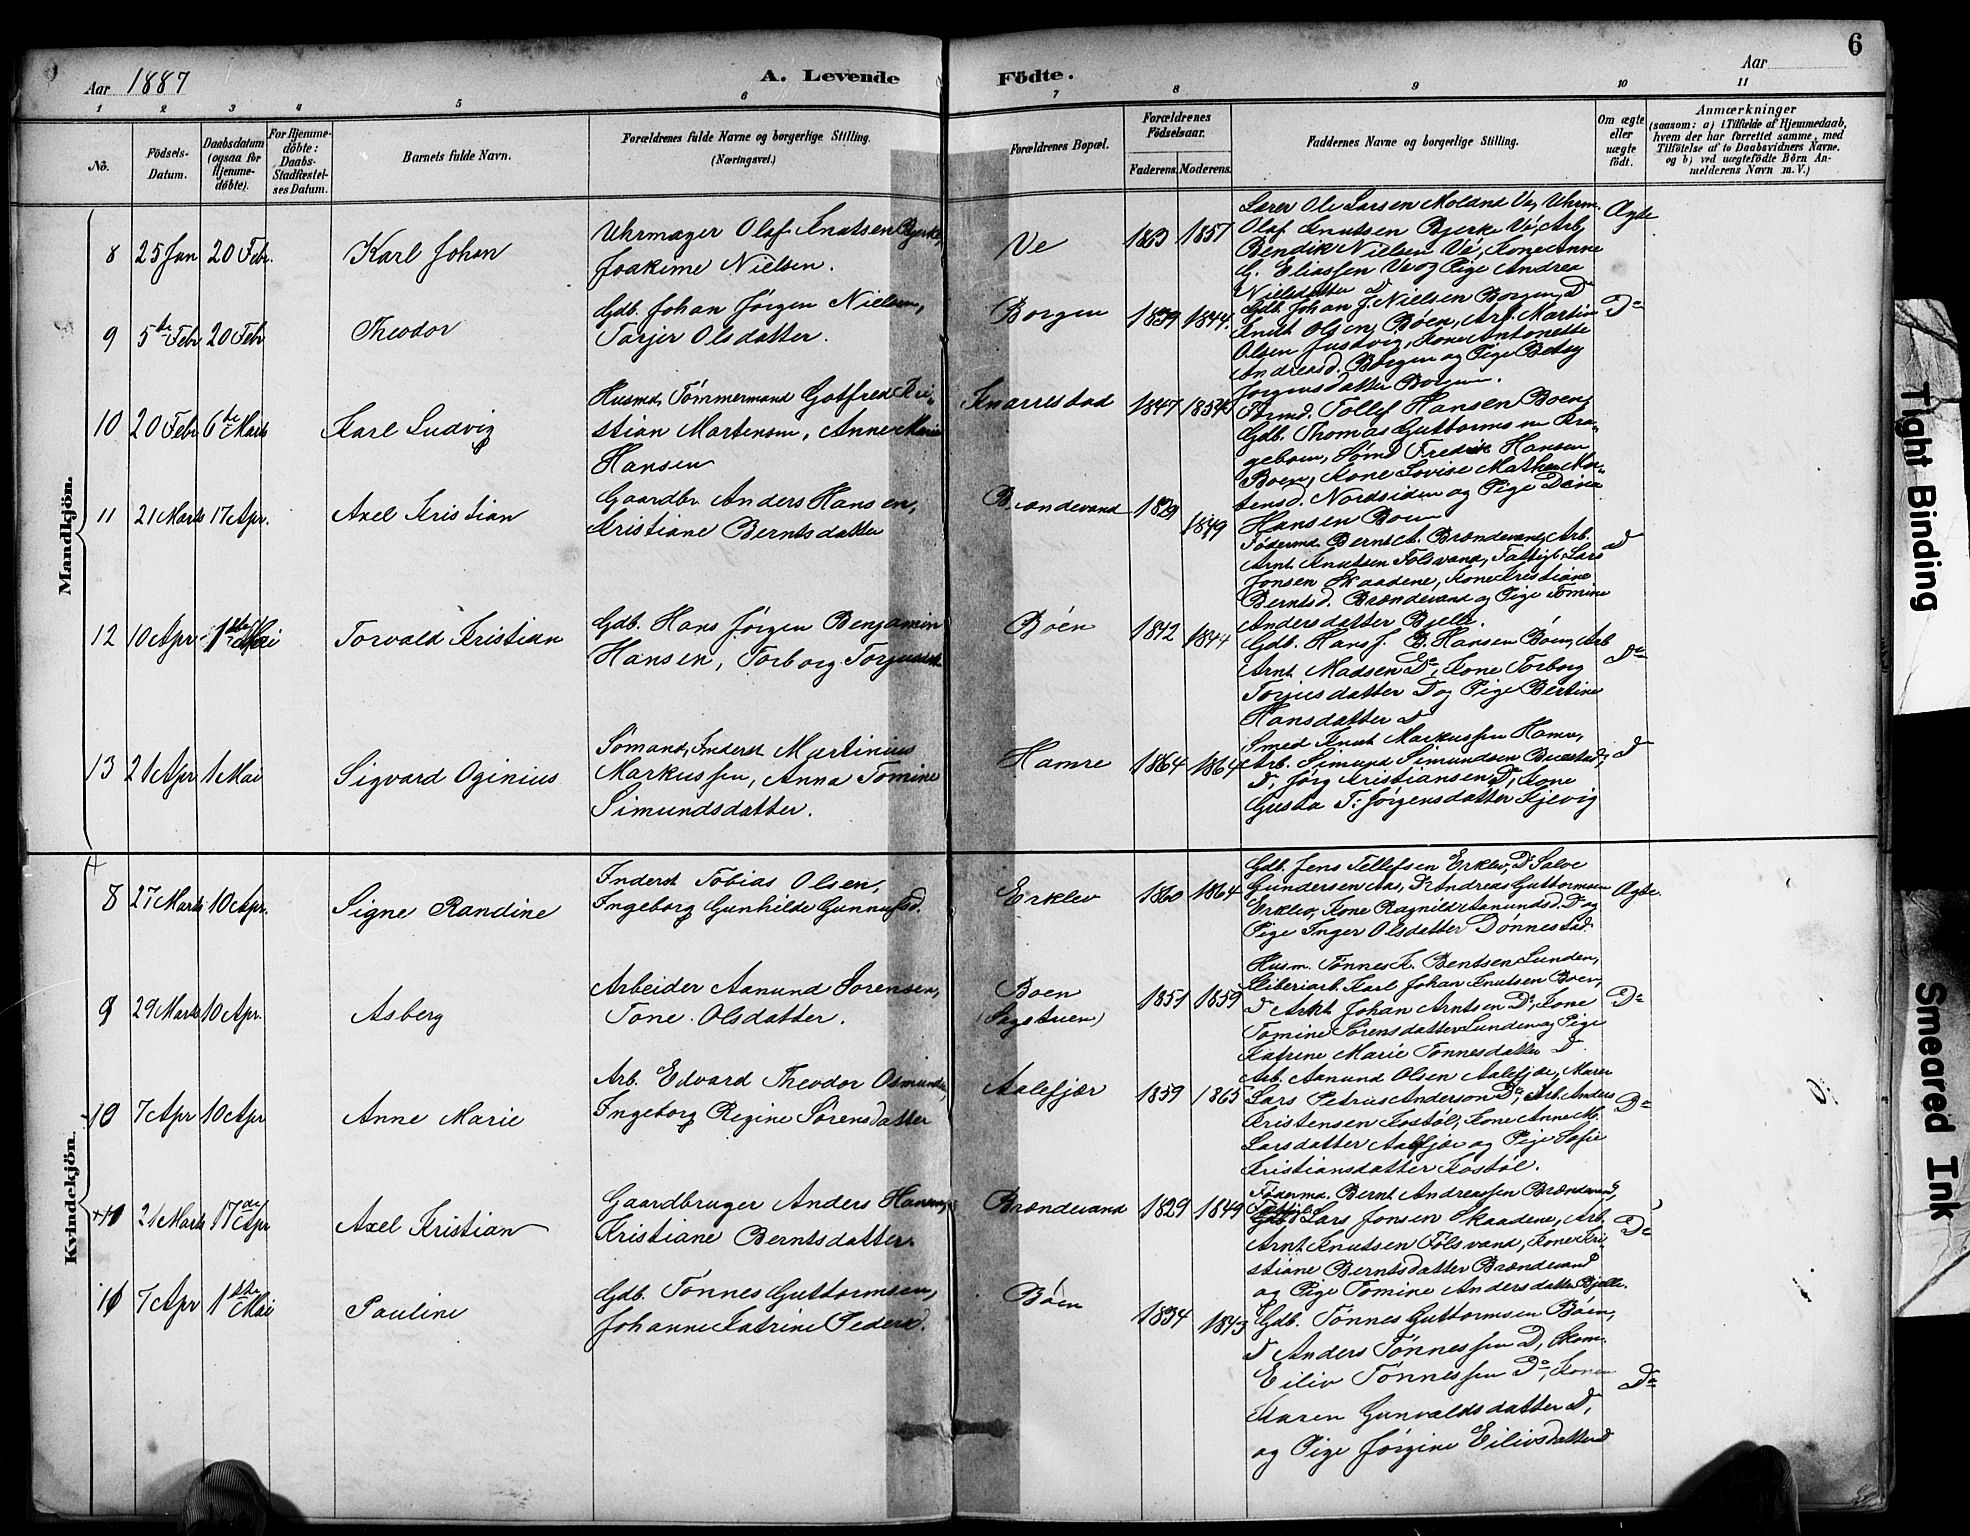 6
Aar 1887
A. Levende Födte.
Aar
1 2 3 4 5 6 7 8 9 10 11
No.
Födsels-Datum.
Daabsdatum (ogsaa for Hjemme-döbte).
For Hjemme-döbte: Daabs-Stadfæstel-ses Datum.
Barnets fulde Navn.
Forældrenes fulde Navne og borgerlige Stilling.
(Næringsvei.)
Forældrenes Bopæl.
Forældrenes Födselsaar.
Faderens. Moderens.
Faddernes Navne og borgerlige Stilling.
Om ægte eller uægte födt.
Anmærkninger
(saasom: a) i Tilfælde af Hjemmedaab,
hvem der har forrettet samme, med
Tilföielse af to Daabsvidners Navne.
og b) ved uægtefödte Börn An-
melderens Navn m. V.)
Mandkjön.
8 25 Jan 20 Febr. Karl Johan
Uhrmager Olaf Knutsen Bjerke,
Joakime Nielsen.
Ve 1863 1857
Lærer Ole Larsen Moland Ve, Uhrm.
Olaf Knutsen Bjerke Ve, Arb.
Bendik Nielsen Ve, Kone Anne
G. Eliassen Ve og Pige Andrea
Nielsdatter D
Ægte
9 5te Febr 20 Febr Theodor
Gdb. Johan Jørgen Nielsen,
Tarjer Olsdatter.
Borgen 1859 1844.
Gdb. Johan J. Nielsen Borgen, D
Knut Olsen Bøen, Arb. Martin
Olsen Justvig, Kone Antonette
Andreasd. Borgen og Pige Betsy
Jørgensdatter Borgen.
Do
10 20 Febr 6te Marts Karl Ludvig
Husmd. Tømmermand Gotfred Kri-
stian Martensen, Anne Marie
Hansen
Knarrestad 1847 1854
Formd. Tollef Hansen Boen,
Gdb. Thomas Guttormsen Kra-
geboen, Sømd Fredrik Hansen
Boen, Kone Lovise Mathea Mor-
tensd. Nordsiden og Pige Dina
Hansen Boen
11 21 Marts 17 Apr. Axel Kristian
Gaardbr. Anders Hansen,
Kristiane Berntsdatter
Brændevand 1829 1849
Fødermd. Bernt A. Brændevand, Arb.
Arnt Knutsen Følsvand, Fattigl. Lars
Jonsen Skaadene, Kone Kristiane
Berntsd. Brændevand og Pige Tomine
Andersdatter Bjelle.
D
12 10 Apr 1ste Mai Torvald Kristian
Gdb. Hans Jørgen Benjamin
Hansen, Torborg Torjusd.
Bøen 1842 1844
Gdb. Hans J. B. Hansen Bøen, Arb
Arnt Madsen Do, Kone Torborg
Torjusdatter D og Pige Bertine
Hansdatter D
Do
13 21 Apr 1 Mai Sigvard Oginius
Sømand, Inderst Martinius
Markussen, Anna Tomine
Simundsdatter.
Hamre 1864 1864
Smed Knut Markussen Hamre,
Arb. Simund Simundsen Buestad,
D, Jørg Kristiansen Do, Kone
Gusta T. Jørgensdatter Kjevig
D
Kvindekjön.
8 27 Marts 10 Apr. Signe Randine
Inderst Tobias Olsen,
Ingeborg Gunhilde Gunnufsd.
Erklev 1860 1864
Gdb. Jens Tellefsen Erklev, Do Salve
Gundersen Aas, Do Andreas Guttormsen
Erklev, Kone Ragnild Aamundsd. Do og
Pige Inger Olsdatter Dønnestad.
Ægte.
9 29 Marts 10 Apr. Asberg
Arbeider Aanund Sørensen,
Tone Olsdatter.
Boen
(Sagstuen) 1851 1859
Husm. Tønnes K. Bentsen Lunden,
Sliberiarb. Karl Johan Knutsen Boen,
D Arbt Johan Arntsen Do, Kone
Tomine Sørensdatter Lunden og Pige
Katrine Marie Tønnesdatter D.
Do
10 7 Apr 10 Apr Anne Marie
Arb. Edvard Theodor Osmundsen,
Ingeborg Regine Sørensdatter
Aalefjær 1859 1865
Arb. Aanund Olsen Aalefjær, Murer
Lars Petrus Anderson Do, Arb. Anders
Kristensen Kostøl, Kone Anne M.
Larsdatter Aalefjær og Pige Sofie
Kristiansdatter Kostøl.
Do
+11 21 Marts 17de Apr Axel Kristian
Gaardbruger Anders Hansen,
Kristiane Berntsdatter.
Brændevand 1829 1849
Føderma. Bernt Andreassen Brændevand,
Fattigl. Lars Jonsen Skaadene, Arb.
Arnt Knutsen Følsvand, Kone Kri-
stiane Berntsdatter Brændevand
og Pige Tomine Andersdatter Bjelle.
Do
11 7 Apr 1ste Mai Pauline
Gdb. Tønnes Guttormsen,
Johanne Katrine Pedersd.
Bøen 1834 1843
Gdb. Tønnes Guttormsen Bøen,
D Anders Tønnessen D, Skom.
Eiliv Tønnessen Do, Kone
Karen Gunvaldsdatter D,
og Pige Jørgine Eilivsdatter D
Do
Tight Binding
Smeared Ink